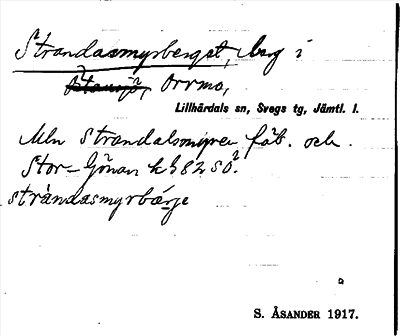 Strandasmyrberget, berg i
Orrmo,
Lillhärdals sn, Svegs tg, Jämtl. l.
Mln Strandalsmyren fäb. och
Stor-Gönan kh 82 SO.
strandasmyrbärje
S. ÅSANDER 1917.